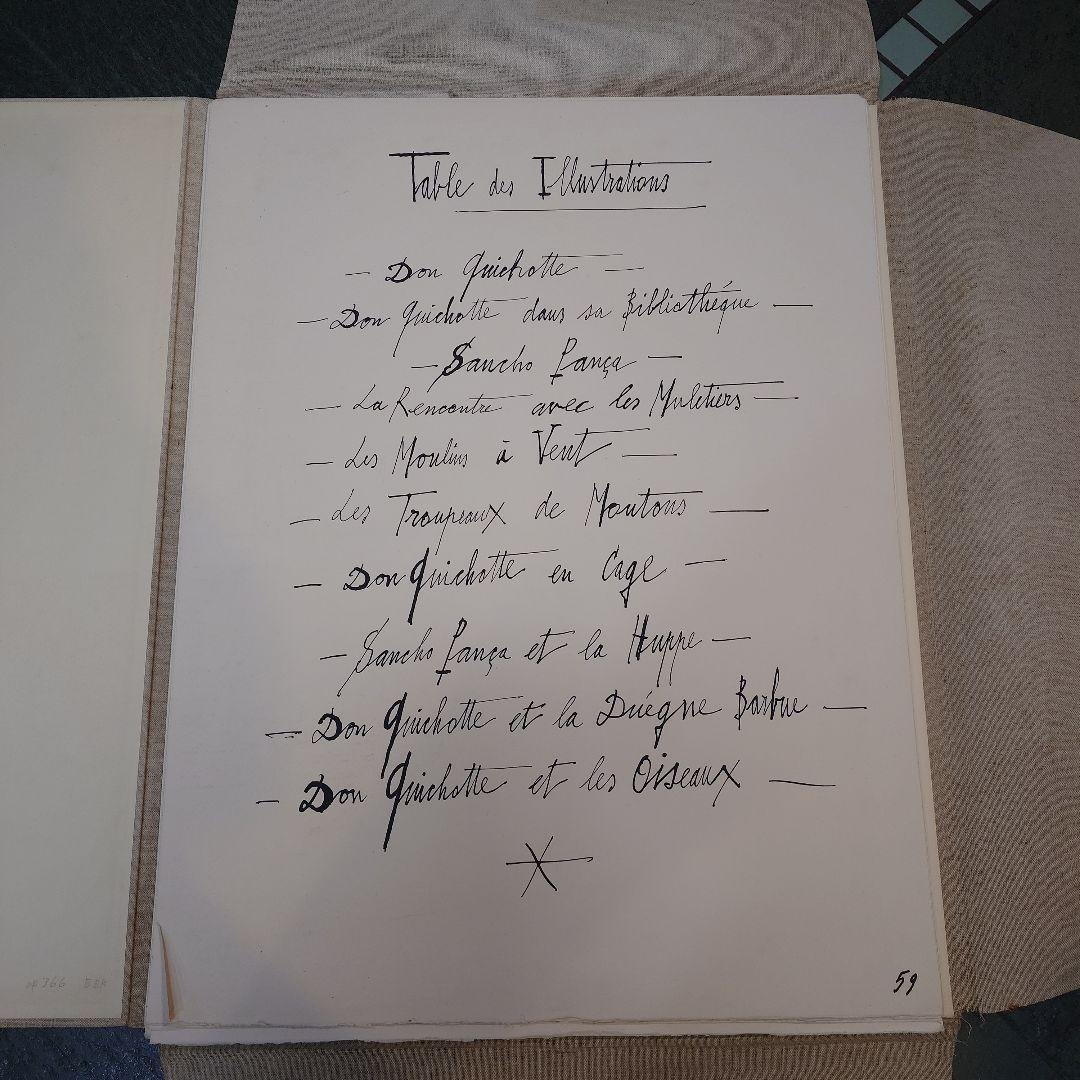 Table des Illustrations
— Don Quichotte —
— Don Quichotte dans sa Bibliothéque —
— Sancho Pança —
— La Rencontre avec les Muletiers —
— Les Moulins à Vent —
— Les Troupeaux de Moutons —
— Don Quichotte en Cage —
— Sancho Pança et la Huppe —
— Don Quichotte et la Duégne Barbue —
— Don Quichotte et les Oiseaux —
59
366